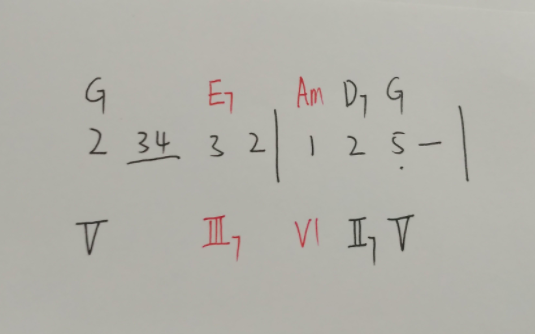 G E7 Am D7 G
2 34 3 2 | 1 2 5 — |
V III7 VI II7 V